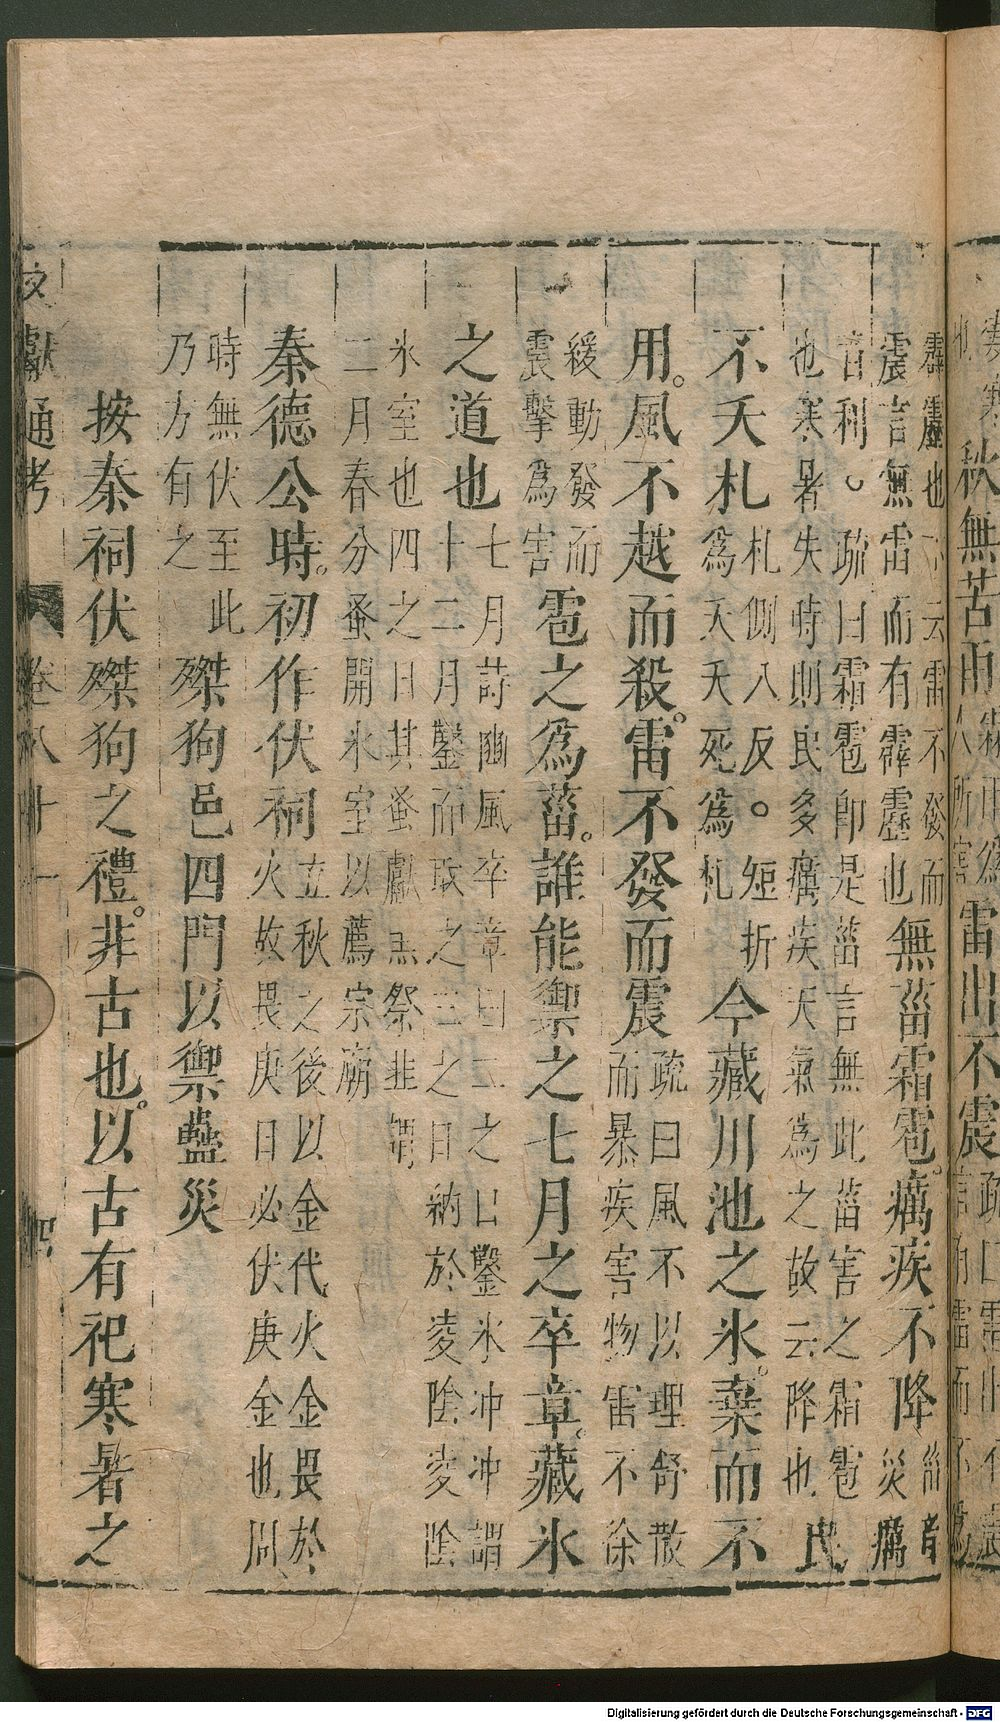 霹靂也云雷不發而
震言無雷而有霹靂也無菑霜雹癘疾不降菑音災癘
音利○疏曰霜雹即是菑言無此菑害之霜雹
也寒暑失時則民多癘疾天氣為之故云降也民
不夭札札側八反○短折為夭夭死為札今藏川池之氷棄而不
用風不越而殺雷不發而震疏曰風不以理舒散而暴疾害物雷不徐
緩動發而震擊為害雹之為菑誰能禦之七月之卒章藏氷
之道也七月詩豳風卒章曰二之日鑿氷沖沖謂十二月鑿而取之三之日納於凌陰凌陰
氷室也四之日其蚤獻羔祭韭謂
二月春分蚤開氷室以薦宗廟
秦德公時初作伏祠立秋之後以金代火金畏於火故畏庚日必伏庚金也周
時無伏至此乃方有之磔狗邑四門以禦蠱災
按秦祠伏磔狗之禮非古也以古有祀寒暑之
文獻通考 卷八十一 四
Digitalisierung gefördert durch die Deutsche Forschungsgemeinschaft - DFG